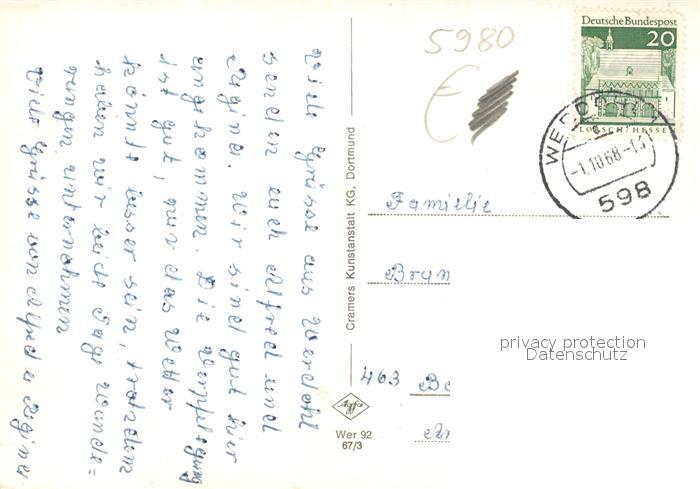 Viele Grüsse aus Werdohl
senden euch Alfred und
Regina. Wir sind gut hier
angekommen. Die Verpflegung
ist gut, nur das Wetter
könnte besser sein, trotzdem
haben wir beide Tage Wande=
rungen unternahmen
Viele Grüsse von Alfred u Regina
Cramers Kunstanstalt KG, Dortmund
Agfa
Wer 92
67/3
5980
Deutsche Bundespost
20
LORSCH/HESSEN
-1.10.68-
598
Familie
Brun
463 Bo
privacy protection
Datenschutz